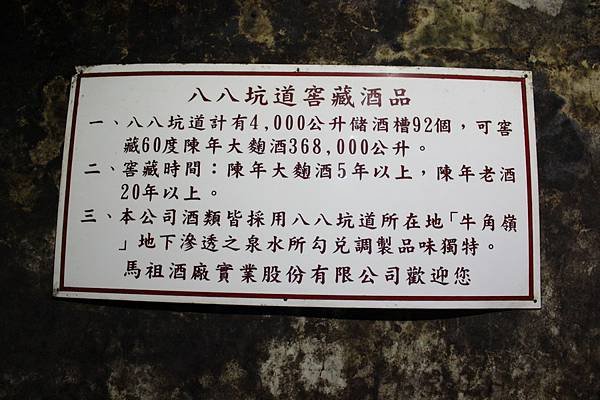 八八坑道窖藏酒品
一、八八坑道計有4,000公升儲酒槽92個，可窖
藏60度陳年大麴酒368,000公升。
二、窖藏時間：陳年大麴酒5年以上，陳年老酒
20年以上。
三、本公司酒類皆採用八八坑道所在地「牛角嶺
」地下滲透之泉水所勾兌調製品味獨特。
馬祖酒廠實業股份有限公司歡迎您